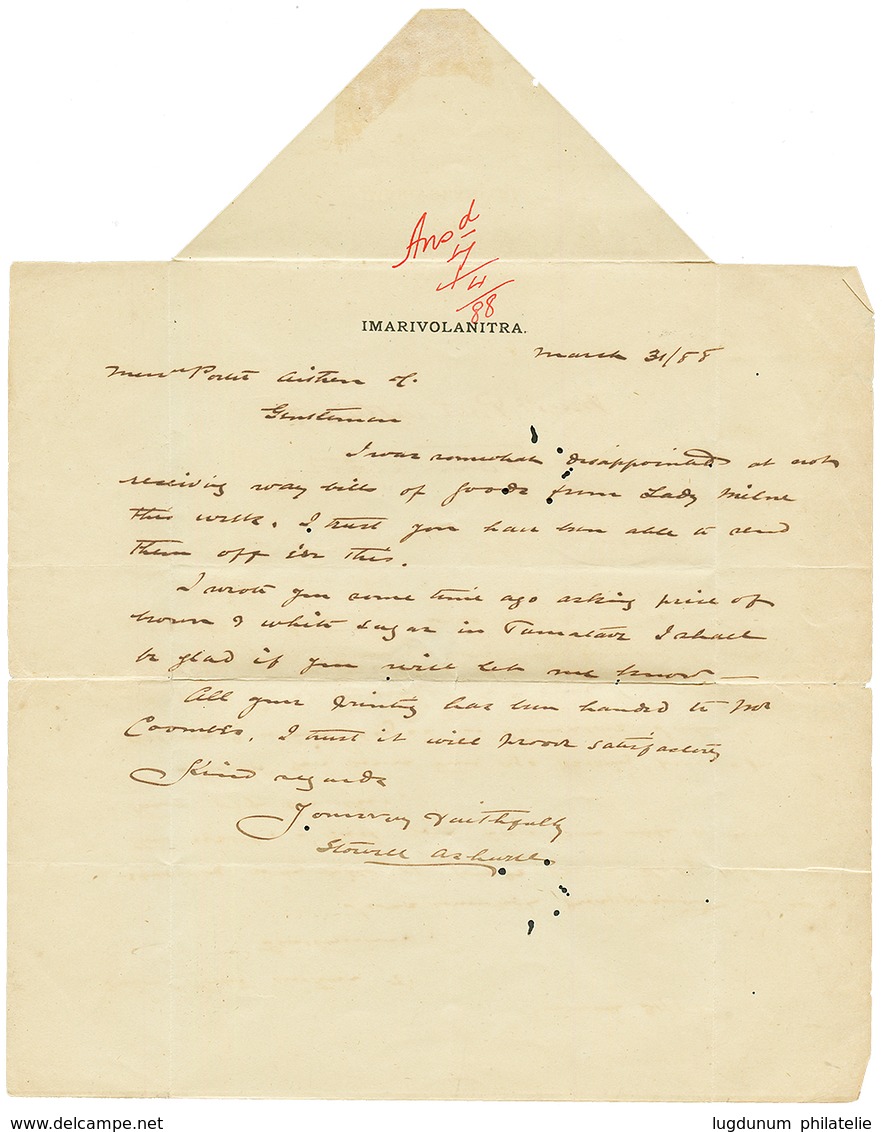 Ansd
4/88
IMARIVOLANITRA.
March 31/88
Messrs Porter Aitken &
Gentlemen
I was somewhat disappointed at not
receiving way bills of goods from Lady Milne
this week. I trust you have been able to send
them off ere this.
I wrote you some time ago asking price of
brown & white sugar in Tamatave I shall
be glad if you will let me know —
All your printing has been handed to Mr
Coombes. I trust it will prove satisfactory
Kind regards
Yours very Faithfully
www.delcampe.net
lugdunum philatelie